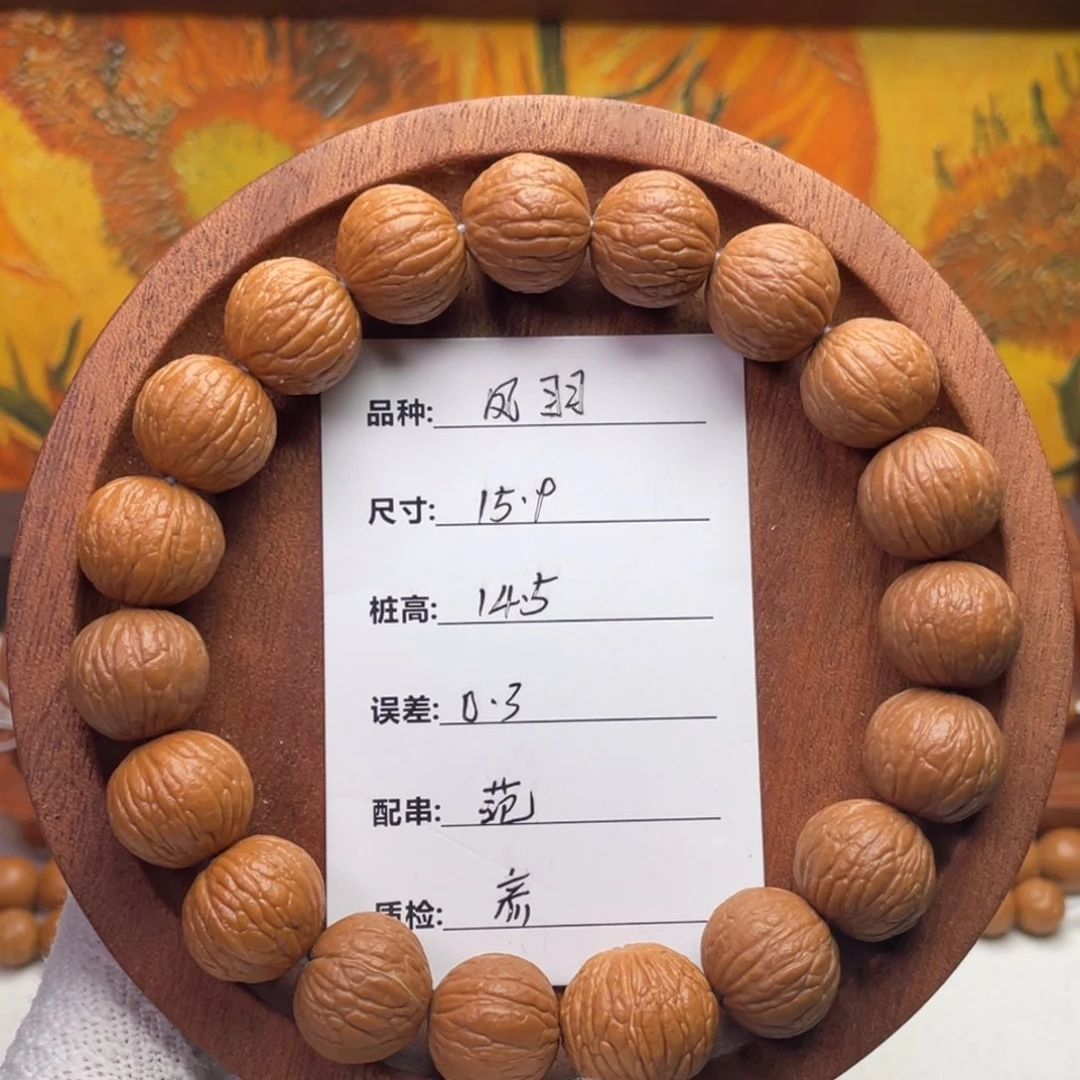 品种: 凤羽
尺寸: 15.9
桩高: 14.5
误差: 0.3
配串: 范
质检: